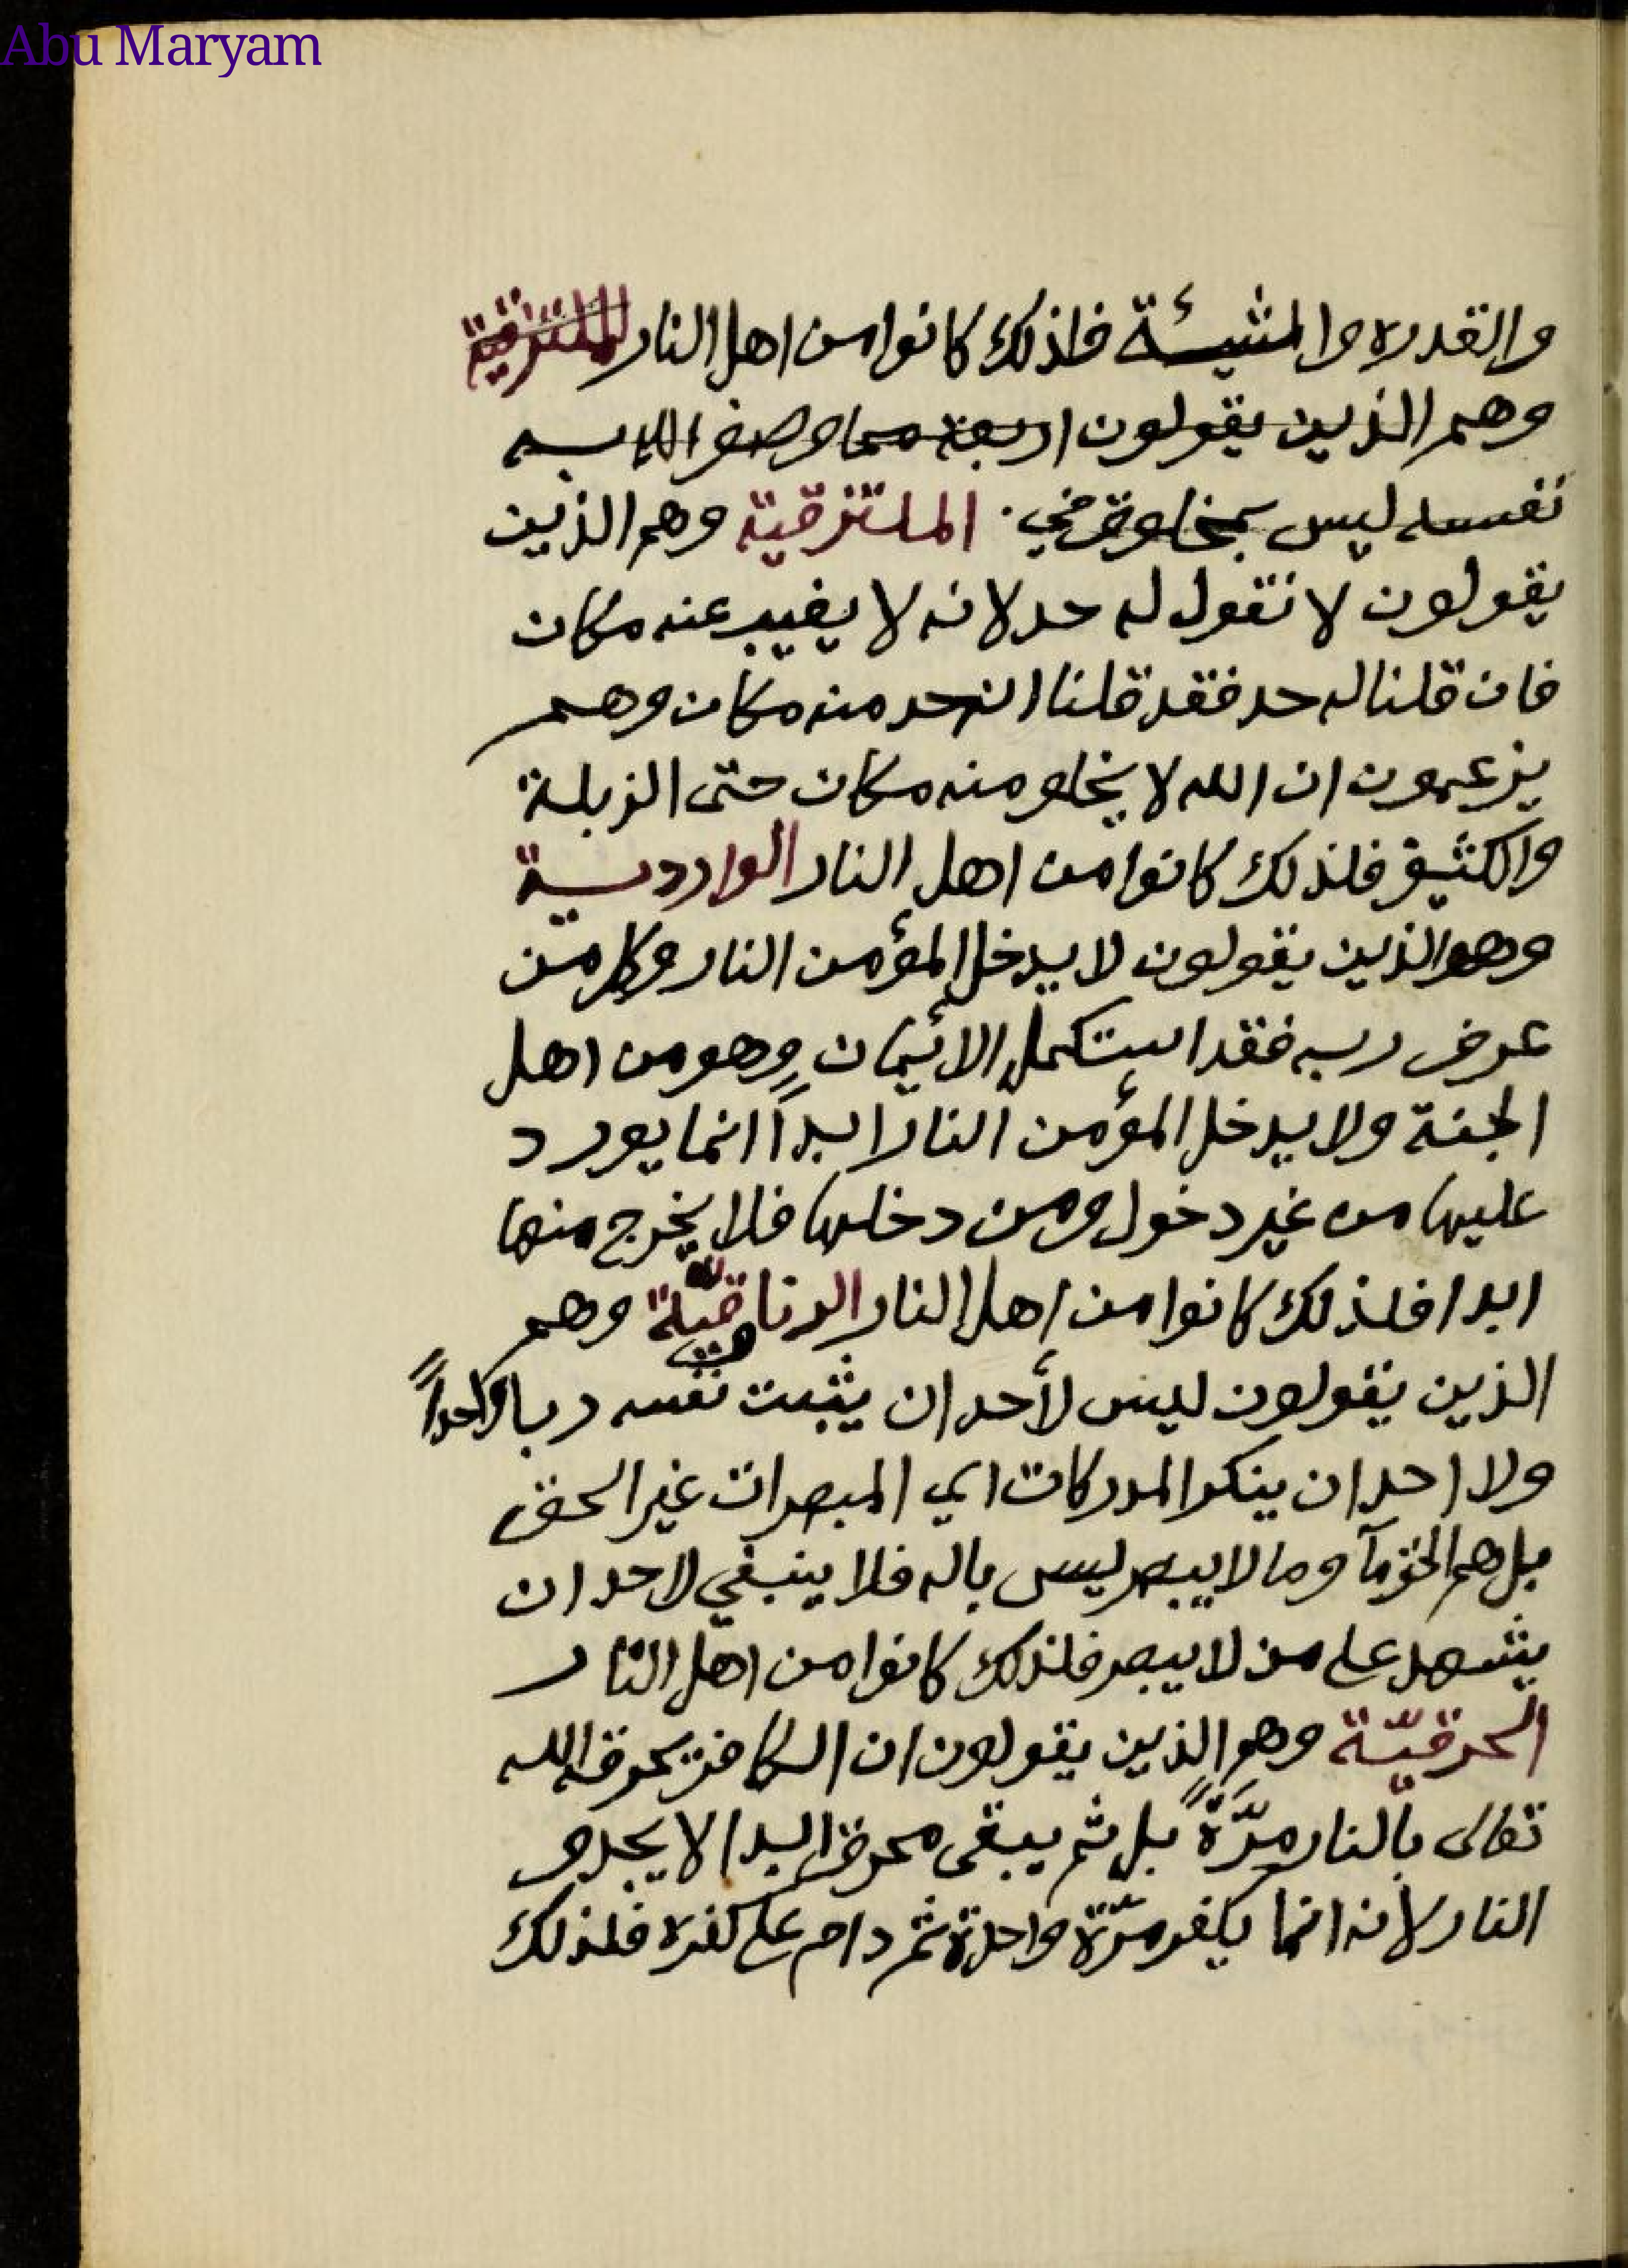 Abu Maryam
والقدره والمشيئة فلذلك كانوا من اهل النار الملتزقية
وهم الذين يقولون اربعة مما وصف الله به
نفسه ليس بمخلوق الملتزقية وهم الذين
يقولون لا نقول له حد لانه لا يغيب عنه مكان
فان قلنا له حد فقد قلنا انه حد منه مكان وهم
يزعمون ان الله لا يخلو منه مكان حتى الزبلة
والكنيف فلذلك كانوا من اهل النار الواردسية
وهم الذين يقولون لا يدخل المؤمن النار وكل من
عرف ربه فقد استكمل الائيمان وهو من اهل
الجنة ولا يدخل المؤمن النار ابداً انما يورد
عليها من غير دخول ومن دخلها فلا يخرج منها
ابدا فلذلك كانوا من اهل النار الزناقيّة وهم
الذين يقولون ليس لأحد ان يثبت نفسه ربا واحداً
ولا احد ان ينكر المدركات اي المبصرات غير الحق
بل هم وما لا يبصر ليس باله فلا ينبغي لاحد ان
يشهد على من لا يبصر فلذلك كانوا من اهل النار
الحرقيّة وهم الذين يقولون ان الكافر يحرقه الله
تعالى بالنار مرّةً بل ثم يبقى محرقا ابدا لا يجد حر
النار لانه انما يكفر مرّة واحدة ثم دام على كفره فلذلك